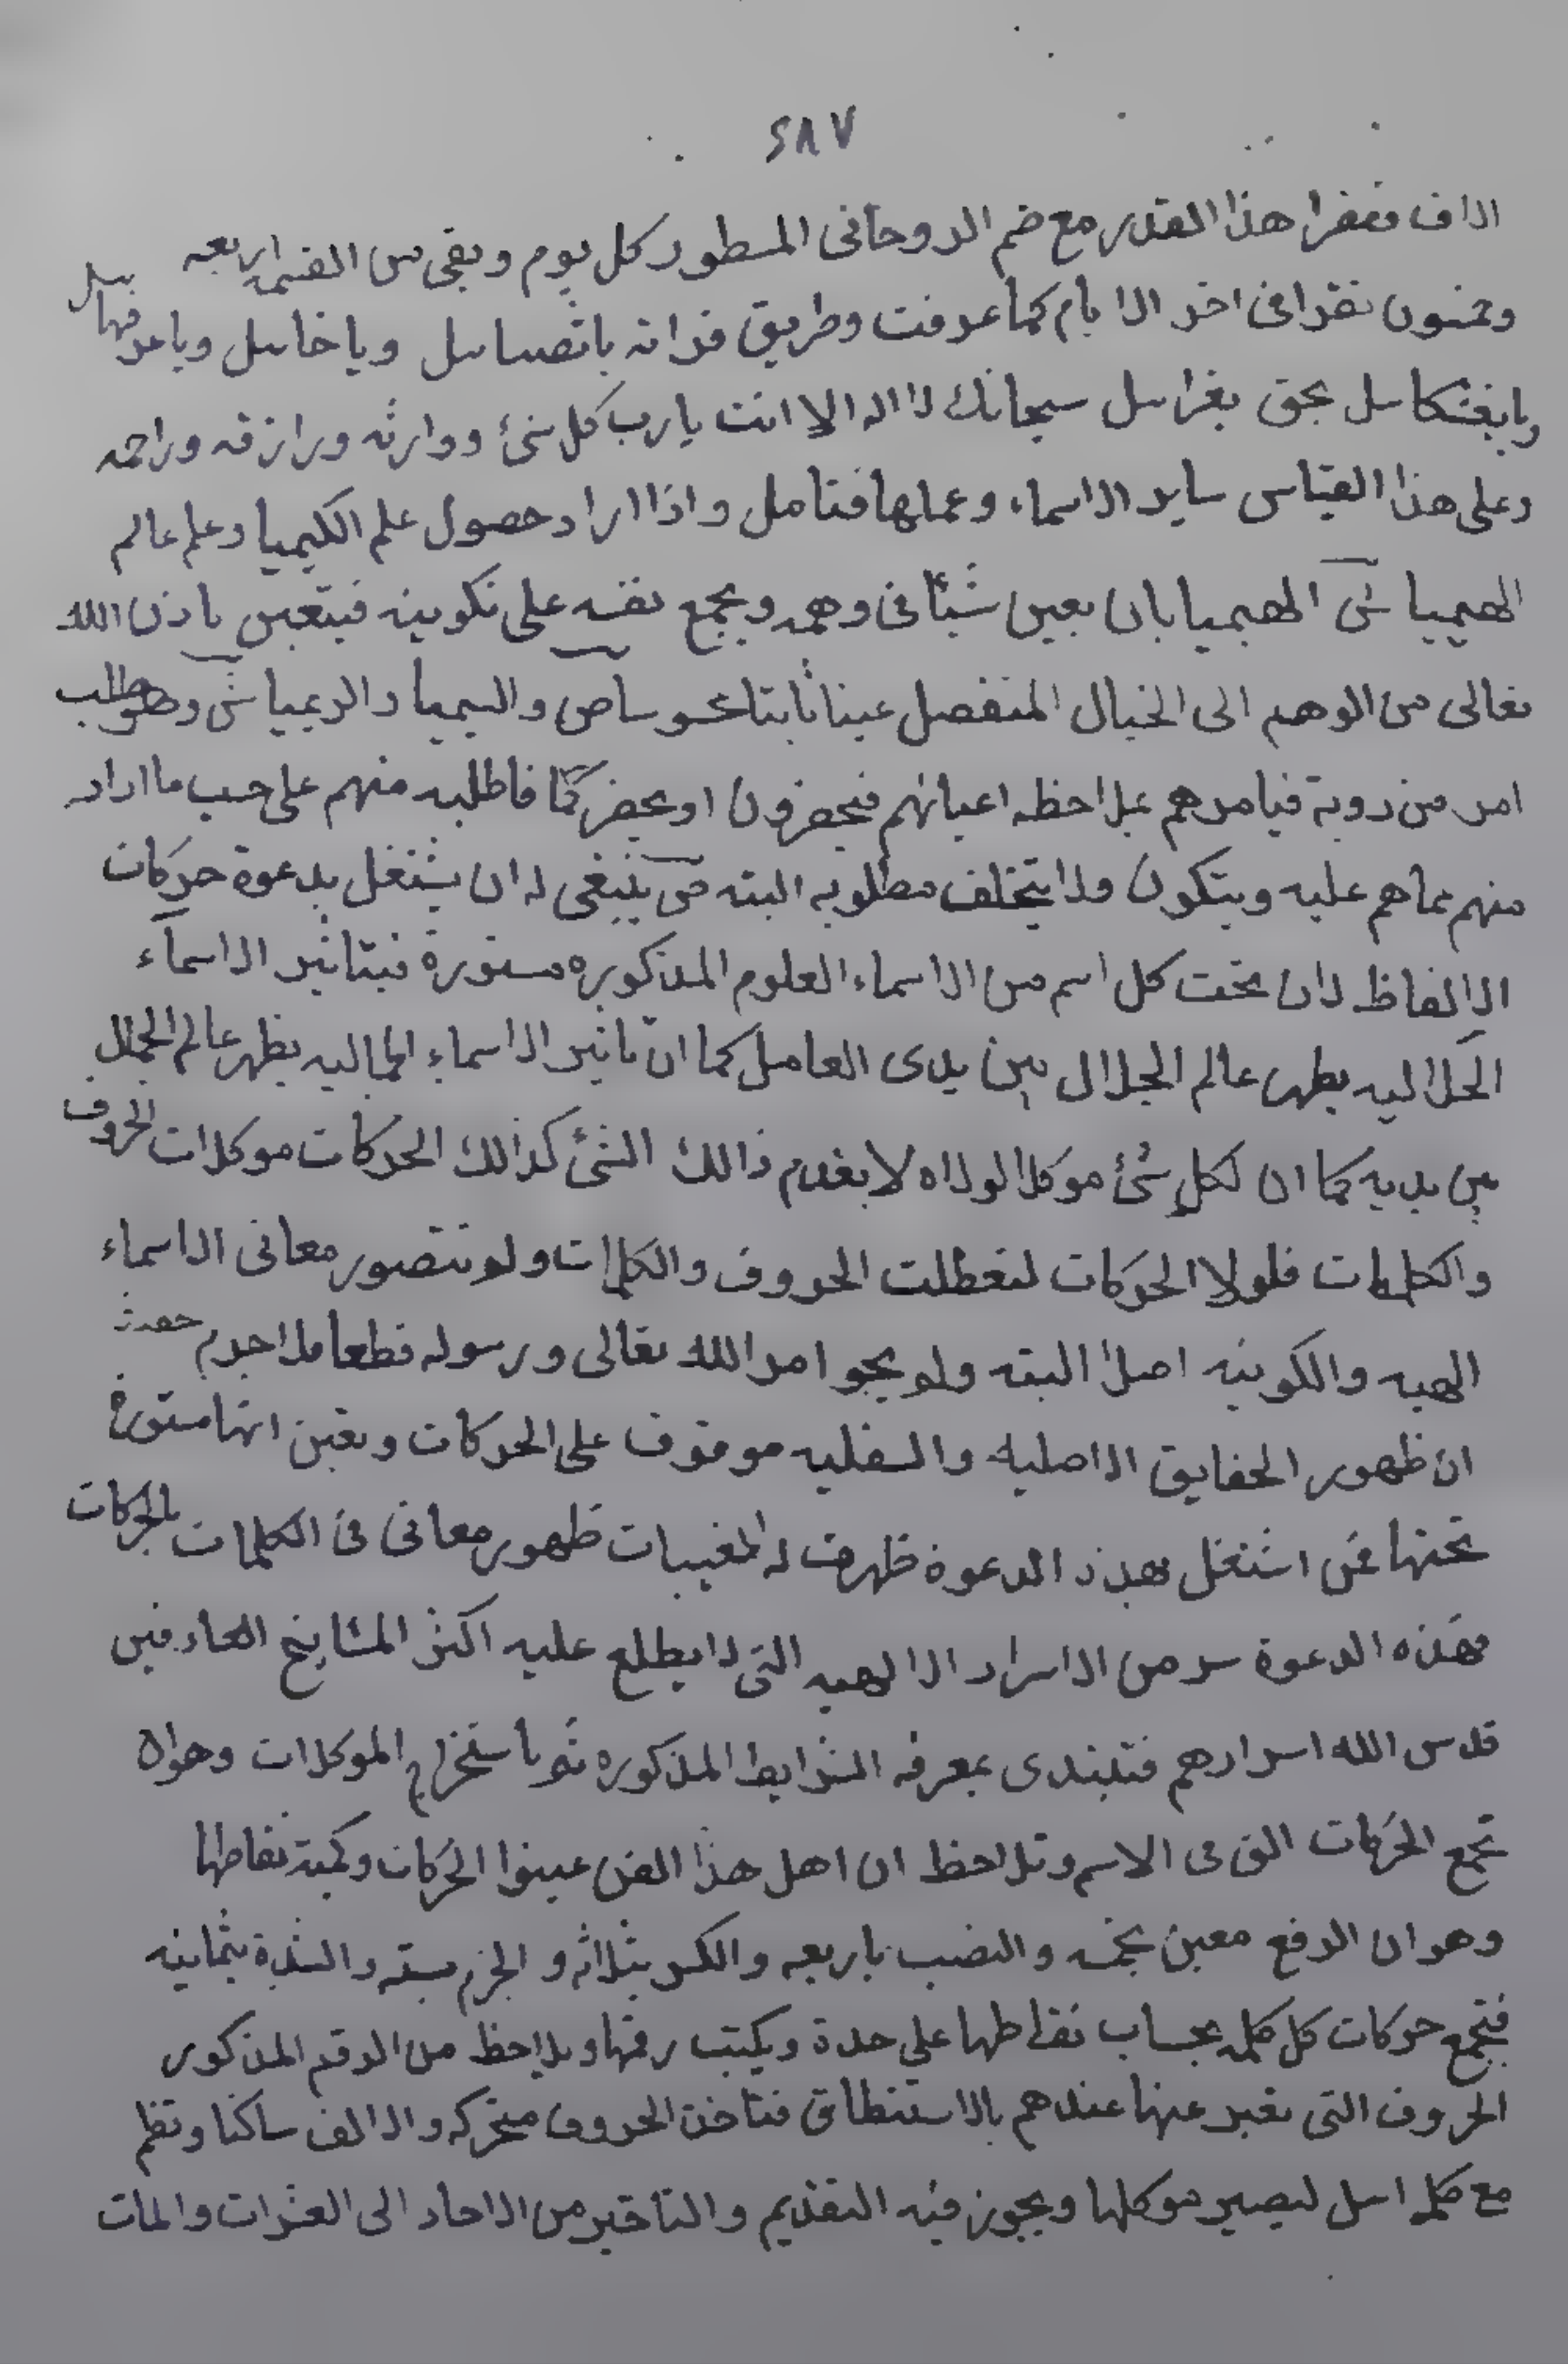 ٢٨٧
الاف فتقرا هذا القدر مع ضم الروحانى المسطور كل يوم وبقى من القسمه اربعه
وخمسون تقرا فى اخر الايام كما عرفت وطريق قراته ياتصائيل وياخائيل وياعرفهائيل
ويايغشكائيل بحق يغرائيل سبحانك لا اله الا انت يارب كل شئ ووارثه ورازقه وراحمه
وعلى هذا القياس ساير الاسماء وعملها فتامل واذا اراد حصول علم الكيميا وعلم عالم
الهيميا الهيميا بان يعين شيئا فى وهمه ويجمع نفسه على تكوينه فيتعين باذن الله
تعالى من الوهم الى الخيال المنفصل عينا ثابتا والسيميا والريميا وهو طلب
امر من روية فيامرهم بملاحظه اعيانهم فيحضرون او يحضر فاطلبه منهم على حسب ما اراد
منهم بما هم عليه ويتكون ولا يتخلف مطلوبه البته ينبغى له ان يشتغل بدعوة حركات
الالفاظ لان تحت كل اسم من الاسماء العلوم المذكوره مستورة فبتاثير الاسماء
الجلاليه يظهر عالم الجلال بين يدى العامل كما ان تاثير الاسماء الجماليه يظهر عالم الجمال
بين يديه كما ان لكل شئ موكلا لولاه لا يعدم ذالك الشئ كذالك الحركات موكلات الحروف
والكلمات فلولا الحركات لتعطلت الحروف والكلمات ولم تتصور معانى الاسماء
الهيه والكونيه اصلا البته ولم يجو امر الله تعالى ورسوله قطعا فلا جرم
ان ظهور الحقايق الاصليه والسفليه موقوف على الحركات وتعين انها مستورة
تحتها فمن اشتغل بهذه الدعوة ظهرت له المغيبات ظهور معانى فى الكلمات بالحركات
فهذه الدعوة سر من الاسرار الالهيه التى لا يطلع عليه اكثر المشايخ العارفين
قدس الله اسرارهم فتبتدى بمعرفه الشرايط المذكوره ثم باستخراج الموكلات وهو ان
تجمع الحركات التى فى الاسم وتلاحظ ان اهل هذا الفن عينوا الحركات وكمية نقاطها
وهو ان الرفع معين بخمسه والنصب باربعه والكسر بثلاثه والجزم بسته والشدة بثمانيه
فتجمع حركات كل كلمه بحساب نقاطها على حدة ويكتب رقمها ويلاحظ من الرقم المذكور
الحروف التى تعبر عنها عندهم بالاستنطاق فتاخذ الحروف متحركه والالف ساكنا وتظم
مع كلمه ائيل ليصير موكلها ويجوز فيه التقديم والتاخير من الاحاد الى العشرات والمات